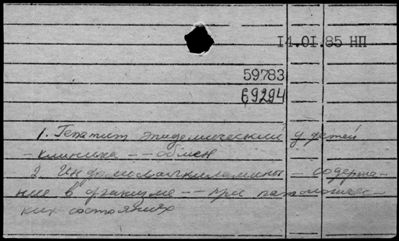 14.01.85 НП
59783
69294
1. Гепатит эпидемический у детей
- клиника -- обмен
2. - содержа-
ние в организме -- при патологичес-
ких состояниях